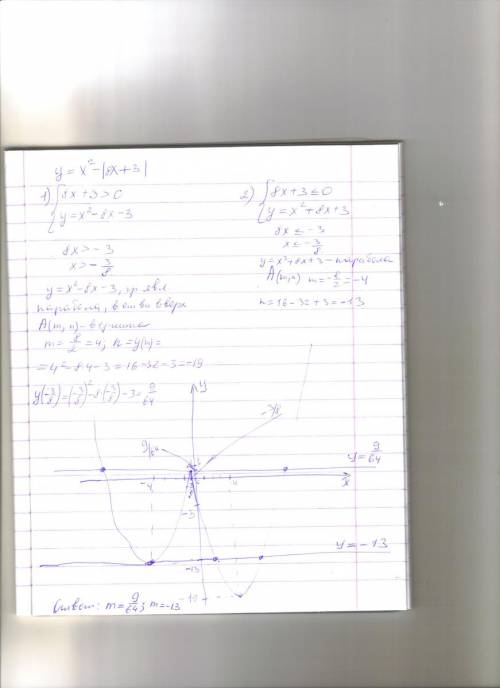 y = x² - |8x + 3|
1) { 8x + 3 > 0
{ y = x² - 8x - 3
8x > - 3
x > - 3/8
y = x² - 8x - 3, гр. явл.
парабола, ветви вверх
A(m, n) - вершина
m = 8/2 = 4; n = y(4) =
= 4² - 8·4 - 3 = 16 - 32 - 3 = -19
y(-3/8) = (-3/8)² - 8·(-3/8) - 3 = 9/64
2) { 8x + 3 ≤ 0
{ y = x² + 8x + 3
8x ≤ -3
x ≤ - 3/8
y = x² + 8x + 3 - парабола
A(m, n) m = -8/2 = -4
n = 16 - 32 + 3 = -13
y
9/64
-3/8
y = 9/64
-4
4
x
-3
-13
y = -13
-19
Ответ: m = 9/64; m = -13